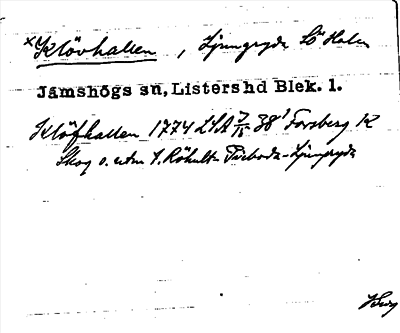 ×Klövhallen, Ljungryda Lö Halen
Jämshögs sn, Listers hd Blek. l.
Klöfhallen 1774 LSA 7/15 38¹ Forsberg K
Skog o. utm f. Röhult- Tveboda-Ljungryda